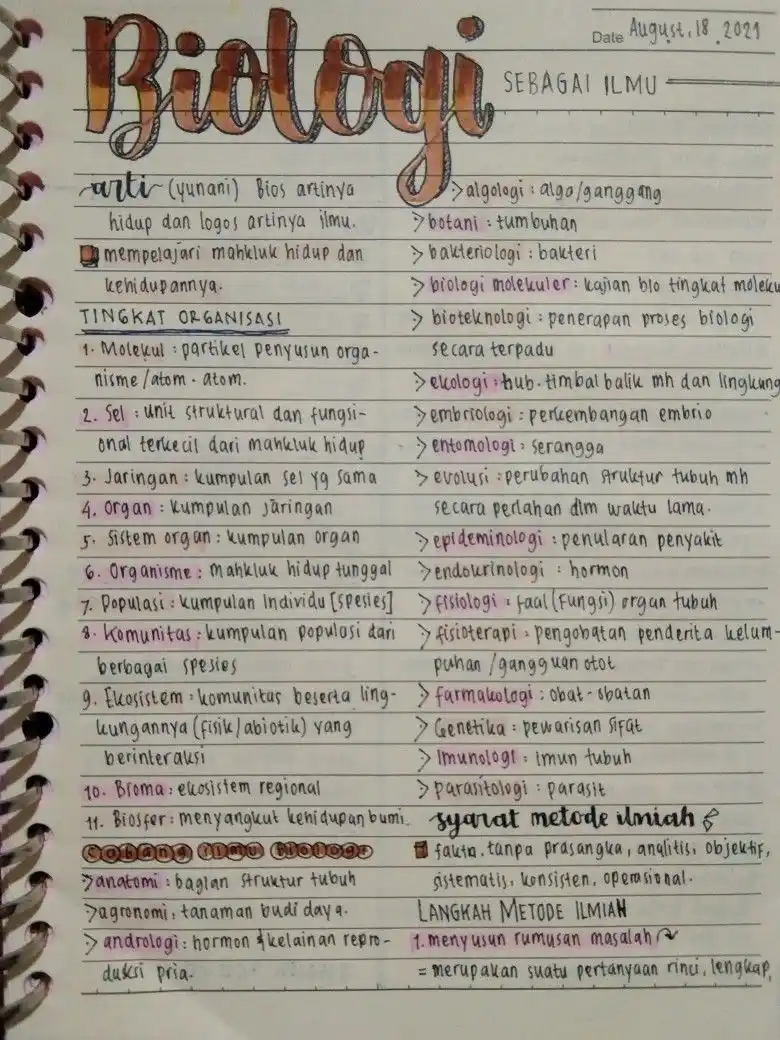 Biologi
Date August, 18, 2021
SEBAGAI ILMU
arti (yunani) Bios artinya
hidup dan logos artinya ilmu.
mempelajari mahkluk hidup dan
kehidupannya.
TINGKAT ORGANISASI
1. Molekul : partikel penyusun orga-
nisme/atom-atom.
2. Sel : unit struktural dan fungsi-
onal terkecil dari mahkluk hidup
3. Jaringan : kumpulan sel yg sama
4. Organ : kumpulan jaringan
5. Sistem organ : kumpulan organ
6. Organisme : mahkluk hidup tunggal
7. Populasi : kumpulan Individu [spesies]
8. Komunitas : kumpulan populasi dari
berbagai spesies
9. Ekosistem : komunitas beserta ling-
kungannya (fisik/abiotik) yang
berinteraksi
10. Bioma : ekosistem regional
11. Biosfer : menyangkut kehidupan bumi.
Cabang Ilmu Biologi
>anatomi : bagian struktur tubuh
>agronomi : tanaman budidaya.
>andrologi : hormon & kelainan repro-
duksi pria.
>algologi : alga/ganggang
>botani : tumbuhan
>bakteriologi : bakteri
>biologi molekuler : kajian bio tingkat moleku
>bioteknologi : penerapan proses biologi
secara terpadu
>ekologi : hub. timbal balik mh dan lingkung
>embriologi : perkembangan embrio
>entomologi : serangga
>evolusi : perubahan struktur tubuh mh
secara perlahan dlm waktu lama.
>epideminologi : penularan penyakit
>endokrinologi : hormon
>fisiologi : faal (fungsi) organ tubuh
>fisioterapi : pengobatan penderita kelum-
puhan /gangguan otot
>farmakologi : obat-obatan
>Genetika : pewarisan sifat
>Imunologi : imun tubuh
>parasitologi : parasit
syarat metode ilmiah
fakta, tanpa prasangka, analitis, objektif,
sistematis, konsisten, operasional.
LANGKAH METODE ILMIAH
1. menyusun rumusan masalah
= merupakan suatu pertanyaan rinci, lengkap,